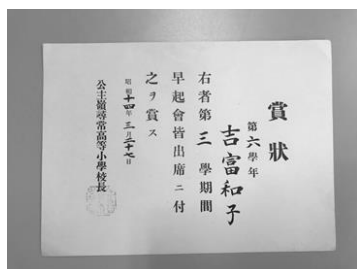 賞狀
第六學年
吉富和子
右者第三學期間
早起會皆出席ニ付
之ヲ賞ス
昭和十四年三月二十七日
公主嶺尋常高等小學校長